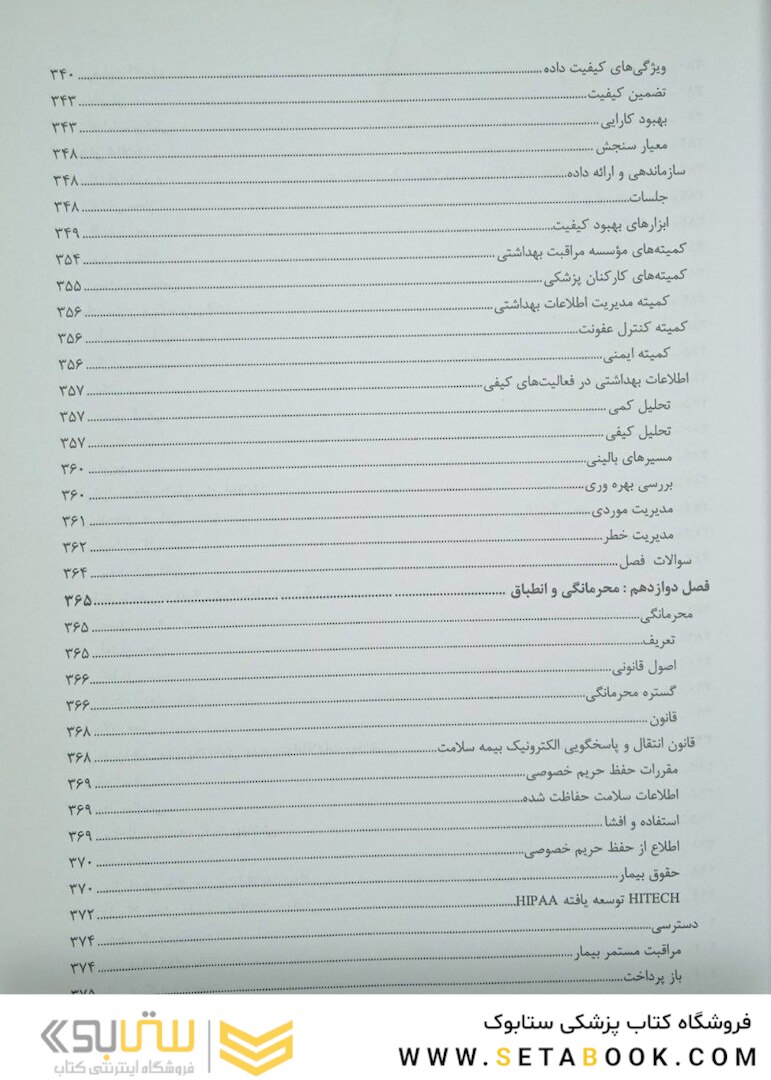 ویژگی‌های کیفیت داده ........ ۳۴۰
تضمین کیفیت ........ ۳۴۳
بهبود کارایی ........ ۳۴۳
معیار سنجش ........ ۳۴۸
سازماندهی و ارائه داده ........ ۳۴۸
جلسات ........ ۳۴۸
ابزارهای بهبود کیفیت ........ ۳۴۹
کمیته‌های مؤسسه مراقبت بهداشتی ........ ۳۵۴
کمیته‌های کارکنان پزشکی ........ ۳۵۵
کمیته مدیریت اطلاعات بهداشتی ........ ۳۵۶
کمیته کنترل عفونت ........ ۳۵۶
کمیته ایمنی ........ ۳۵۶
اطلاعات بهداشتی در فعالیت‌های کیفی ........ ۳۵۷
تحلیل کمی ........ ۳۵۷
تحلیل کیفی ........ ۳۵۷
مسیرهای بالینی ........ ۳۶۰
بررسی بهره وری ........ ۳۶۰
مدیریت موردی ........ ۳۶۱
مدیریت خطر ........ ۳۶۲
سوالات فصل ........ ۳۶۴
فصل دوازدهم : محرمانگی و انطباق ........ ۳۶۵
محرمانگی ........ ۳۶۵
تعریف ........ ۳۶۵
اصول قانونی ........ ۳۶۶
گستره محرمانگی ........ ۳۶۶
قانون ........ ۳۶۸
قانون انتقال و پاسخگویی الکترونیک بیمه سلامت ........ ۳۶۸
مقررات حفظ حریم خصوصی ........ ۳۶۹
اطلاعات سلامت حفاظت شده ........ ۳۶۹
استفاده و افشا ........ ۳۶۹
اطلاع از حفظ حریم خصوصی ........ ۳۷۰
حقوق بیمار ........ ۳۷۰
HITECH توسعه یافته HIPAA ........ ۳۷۲
دسترسی ........ ۳۷۴
مراقبت مستمر بیمار ........ ۳۷۴
باز پرداخت ........ ۳۷۵
فروشگاه کتاب پزشکی ستابوک
WWW.SETABOOK.COM
ستابوک
فروشگاه اینترنتی کتاب